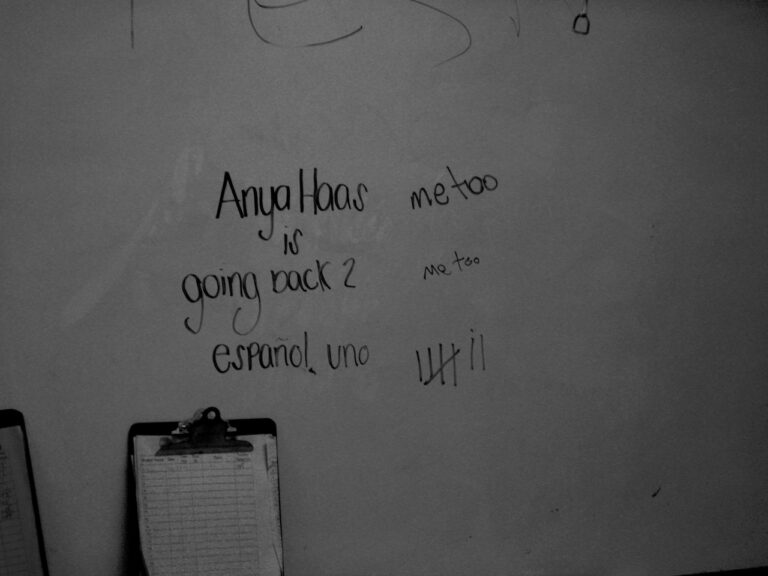 Anya Haas me too
is
going back 2 me too
español. uno